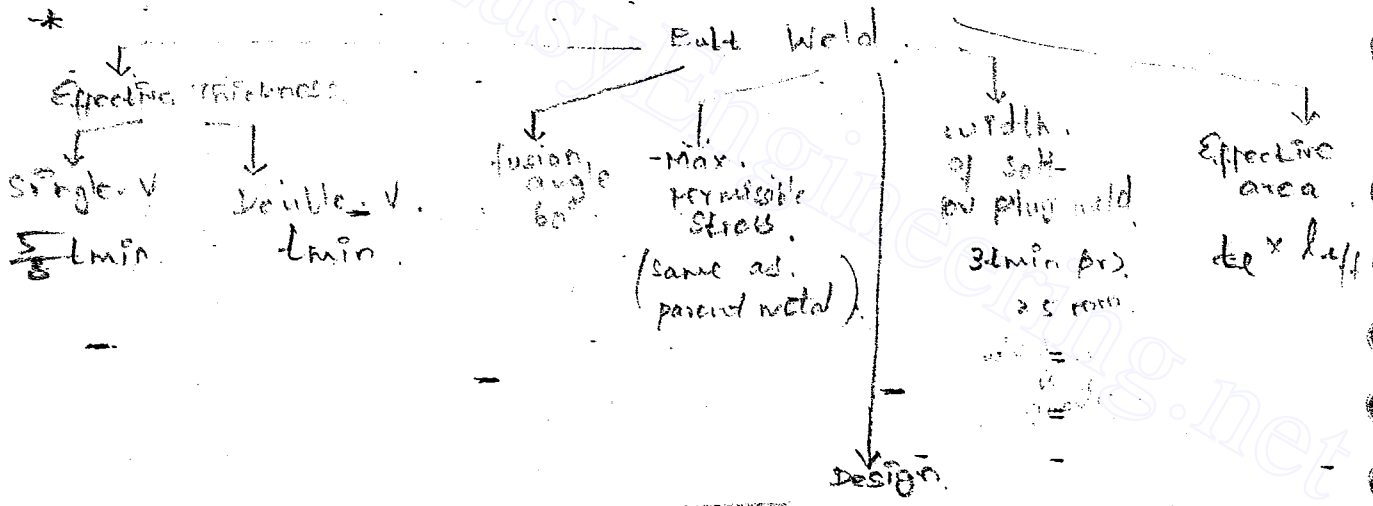 Butt Weld.
Effective thickness.
Single-V
Double-V.
5/8 tmin.
tmin.
fusion
angle
60°.
-Max.
permissible
stress.
(same as.
parent metal)
width.
of
or plug weld.
3tmin (or).
25 mm.
Effective
area
te × leff
Design.
EasyEngineering.net